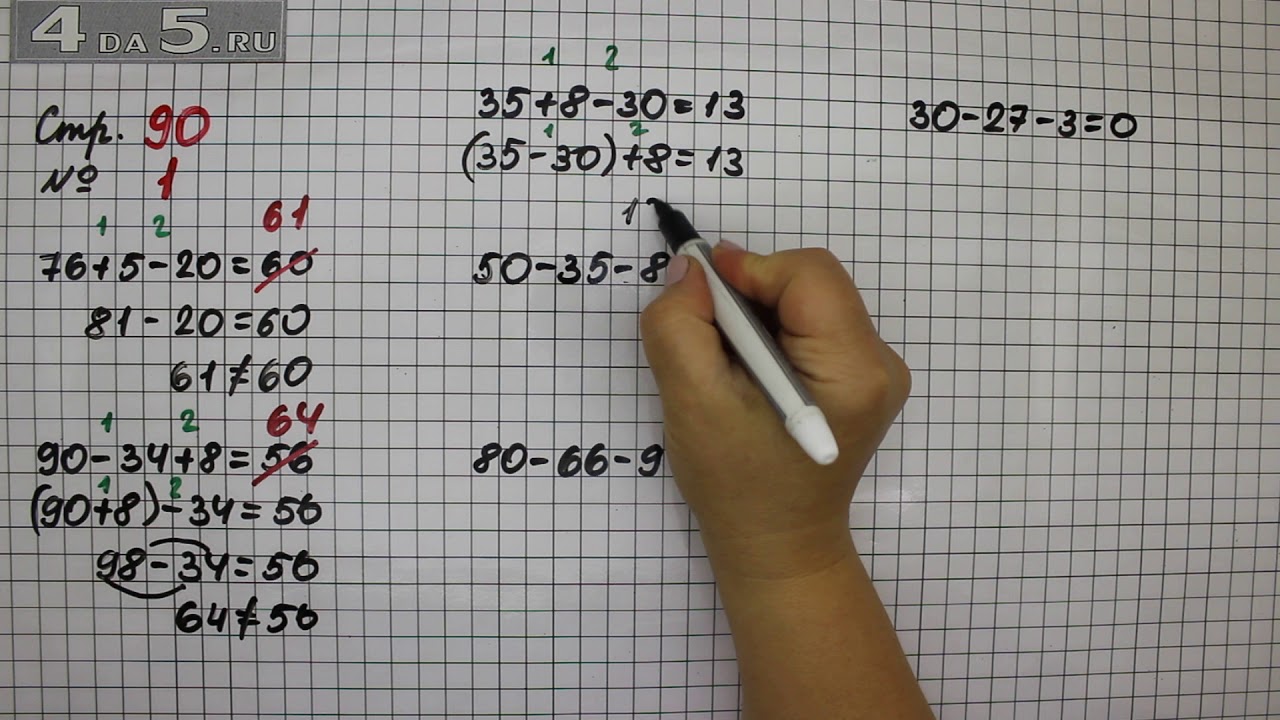 4DA5.RU
Стр. 90
№ 1
1 2 61
76+5-20=60
81-20=60
61≠60
1 2 64
90-34+8=56
1 2
(90+8)-34=56
98-34=56
64≠56
1 2
35+8-30=13
1 2
(35-30)+8=13
1
50-35-8
80-66-9
30-27-3=0